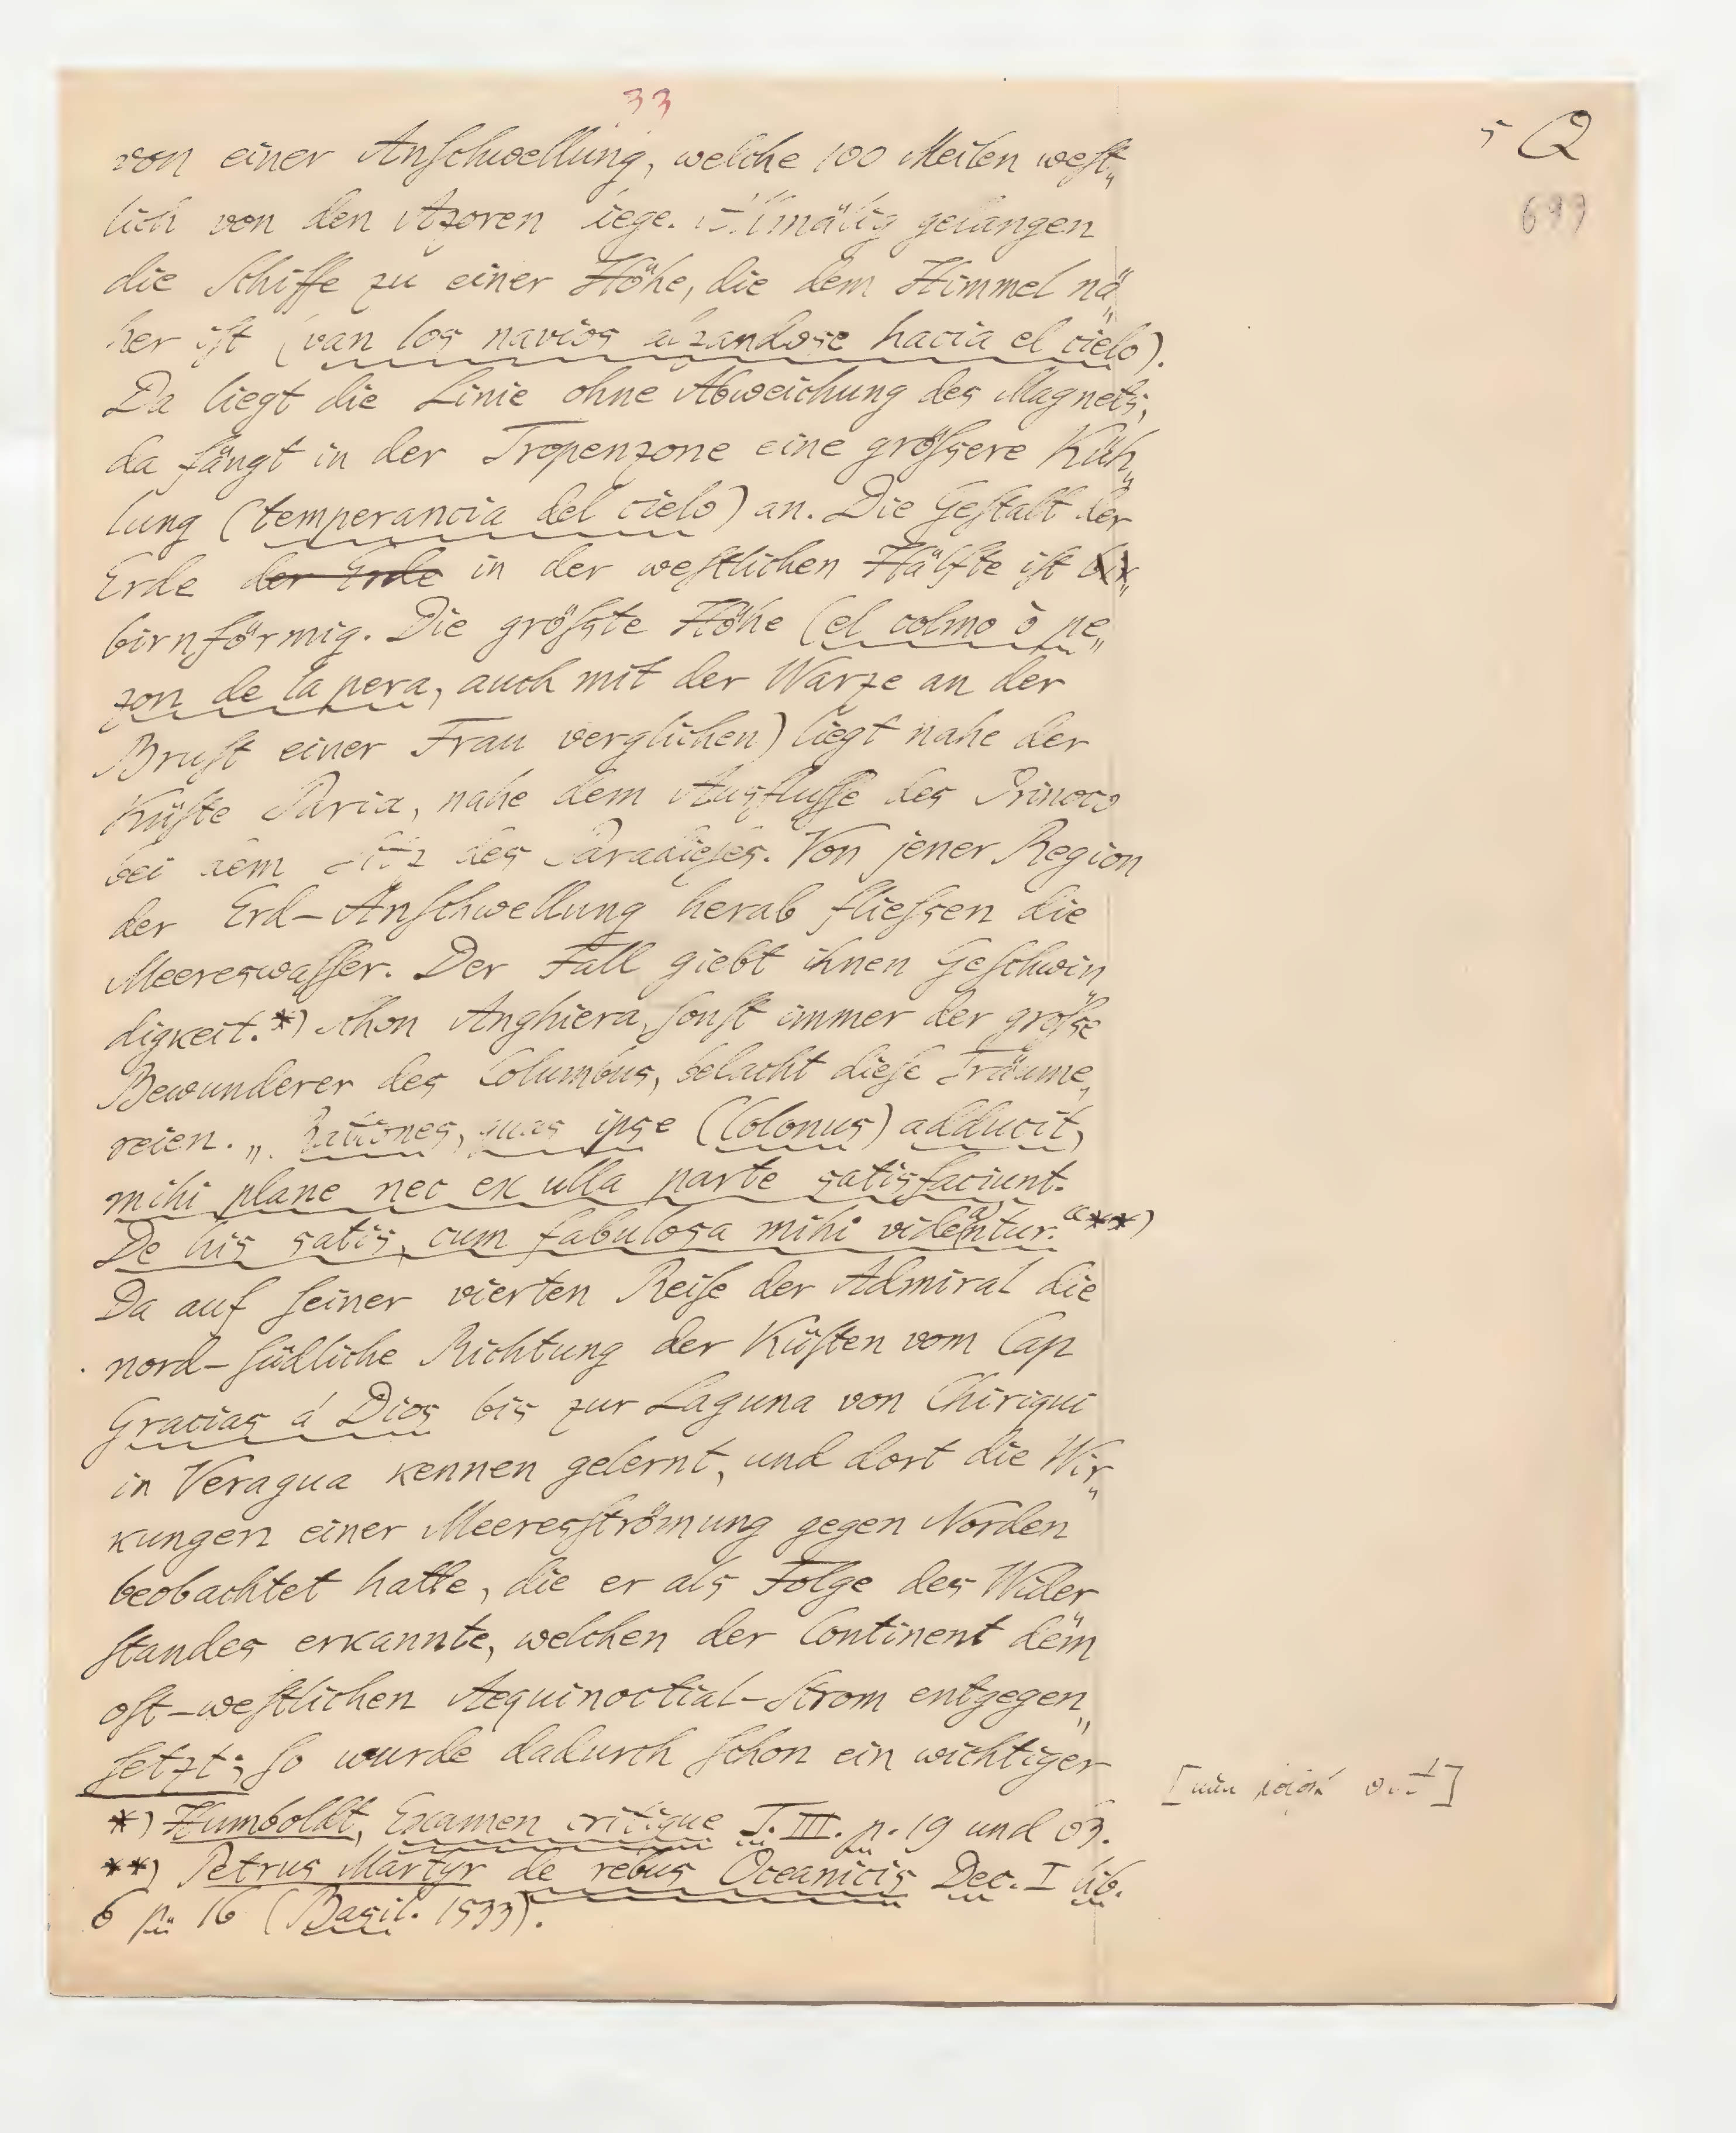 33
5 Q
699
von einer Anſchwellung, welche 100 Meilen weſt„
lich von den Azoren liege. Allmälig gelangen
die Schiffe zu einer Höhe, die dem Himmel nä„
her iſt (van los navios alzandose hacia el cielo).
Da liegt die Linie ohne Abweichung des Magnets;
da fängt in der Tropenzone eine gröſsere Küh„
lung (temperancia del cielo) an. Die Geſtalt der
Erde der Erde in der weſtlichen Hälfte iſt bir„
birnförmig. Die gröſste Höhe (el colmo ò pe„
zon de la pera, auch mit der Warze an der
Bruſt einer Frau verglichen) liegt nahe der
Küſte Paria, nahe dem Ausfluſſe des Orinoco
bei dem Sitz des Paradieſes. Von jener Region
der Erd-Anſchwellung herab flieſsen die
Meereswaſſer. Der Fall giebt ihnen Geſchwin„
digkeit.*) Schon Anghiera, ſonſt immer der groſse
Bewunderer des Columbus, belacht dieſe Träume„
reien. „Rationes, quas ipse (Colonus) adducit,
mihi plane nec ex ulla parte satisfaciunt.
De his satis, cum fabulosa mihi videantur.“**)
Da auf ſeiner vierten Reiſe der Admiral die
nord-ſüdliche Richtung der Küſten vom Cap
Gracias á Dios bis zur Laguna von Chiriqui
in Veragua kennen gelernt, und dort die Wir„
kungen einer Meeresſtrömung gegen Norden
beobachtet hatte, die er als Folge des Wider
ſtandes erkannte, welchen der Continent dem
oſt-weſtlichen Aequinoctial-Strom entgegen„
ſetzt; ſo wurde dadurch ſchon ein wichtiger
*) Humboldt, Examen critique T. III. p. 19 und 63.
**) Petrus Martyr de rebus Oceanicis Dec. I lib.
6 p. 16 (Basil. 1533).